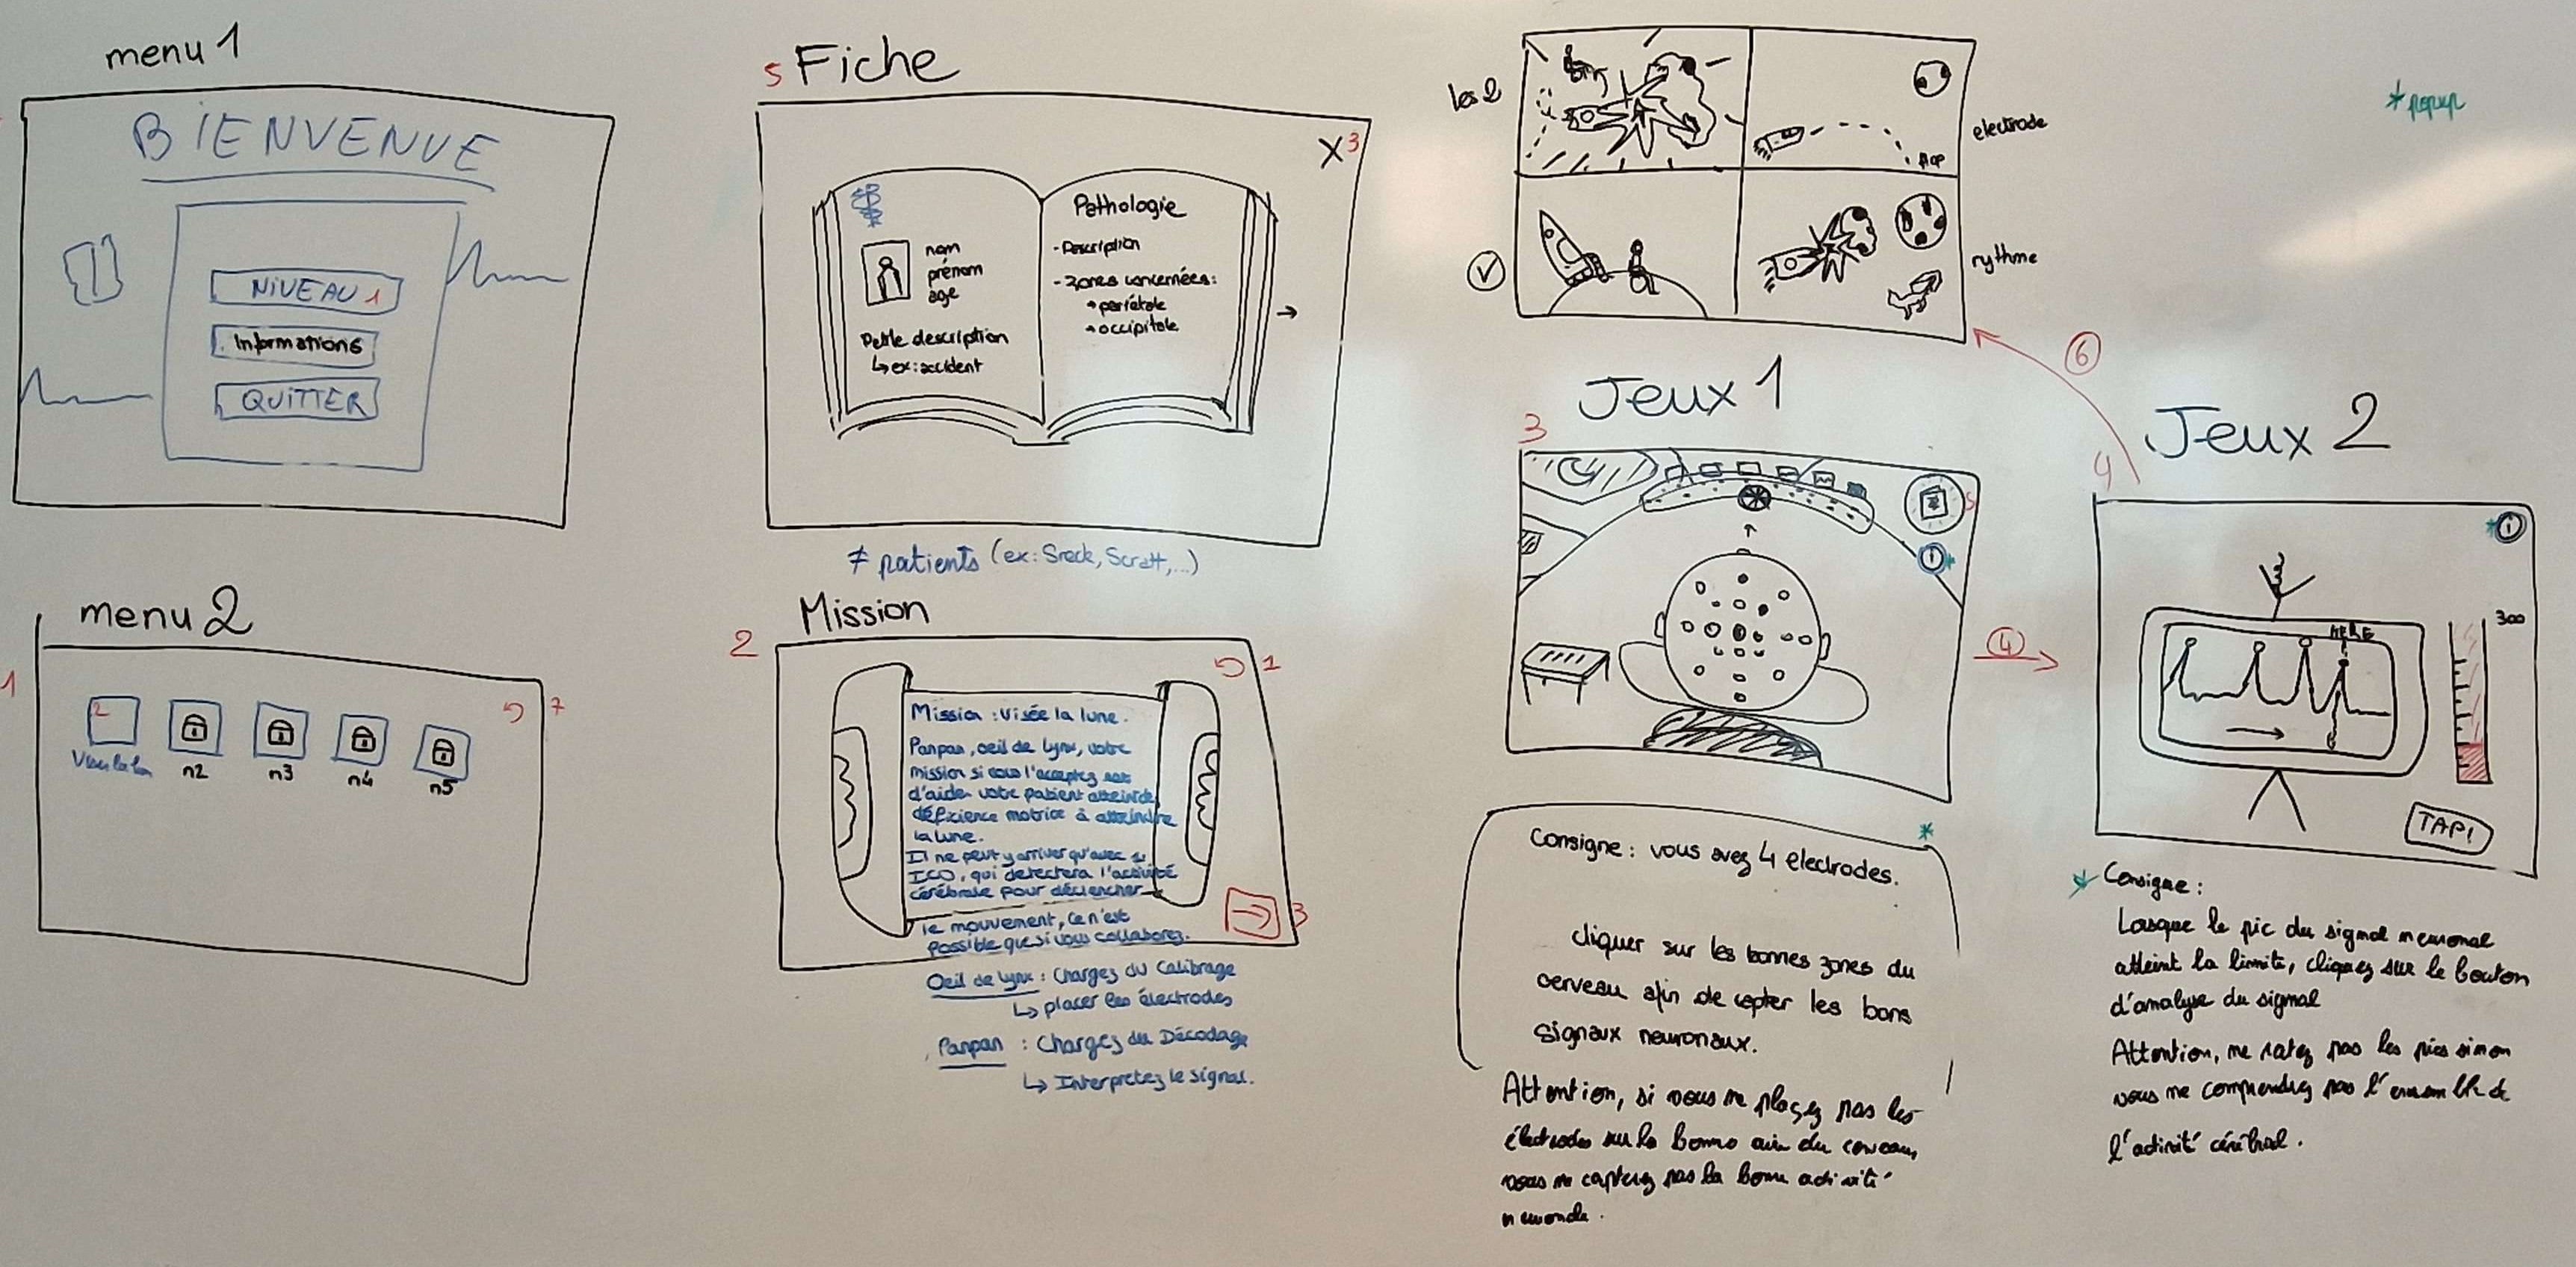 menu 1
BIENVENUE
NIVEAU 1
Informations
QUITTER
menu 2
1
7
2
n2
n3
n4
n5
5 Fiche
X 3
nom
prénom
age
Petite description
↳ ex: accident
Pathologie
- Description
- Zones concernées:
→ pariétale
→ occipitale
→
≠ patients (ex: Sreck, Scratt,...)
Mission
2
1
Mission : Visée la lune.
Panpan, oeil de lynx, votre
mission si vous l'acceptez est
d'aider votre patient atteint de
déficience motrice à atteindre
la lune.
Il ne peut y arriver qu'avec
ICO, qui detectera l'activité
cérébrale pour déclencher
le mouvement, ce n'est
possible que si vous collaborez.
3
Oeil de Lynx : Chargez du Calibrage
↳ placer les électrodes
Panpan : Chargez du Décodage
↳ Interpretez le signal.
les 2
electrode
rythme
6
* popup
Jeux 1
3
5
i *
4
Consigne : vous avez 4 electrodes.
*
cliquer sur les bonnes zones du
cerveau afin de capter les bons
signaux neuronaux.
Attention, si vous ne placez pas les
électrodes sur la bonne aire du cerveau,
vous ne capterez pas la bonne activité
neuronale.
Jeux 2
4
* i
HERE
300
TAP!
* Consigne :
Lorsque le pic du signal neuronal
atteint la limite, cliquez sur le bouton
d'analyse du signal
Attention, ne ratez pas les pics sinon
vous ne comprendrez pas l'ensemble de
l'activité cérébral.